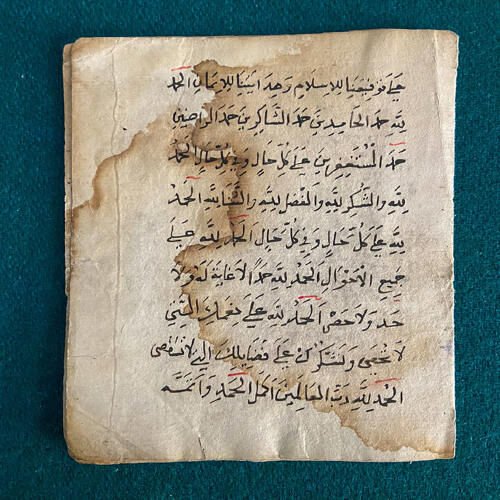 على توفيقنا للاسلام وهدايتنا للايمان الحمد
لله حمد الحامدين حمد الشاكرين حمد الراضين
حمد المستغفرين على كل حال وفي كل حال الحمد
لله والشكر لله والفضل لله والثنا لله الحمد
لله على كل حال وفي كل حال الحمد لله على
جميع الاحوال الحمد لله حمدا لا غاية له ولا
حد ولا حصر الحمد لله على نعمك التي
لا تحصى ونشكرك على فضايلك التي لا تقصى
الحمد لله رب العالمين اكمل الحمد واتمه